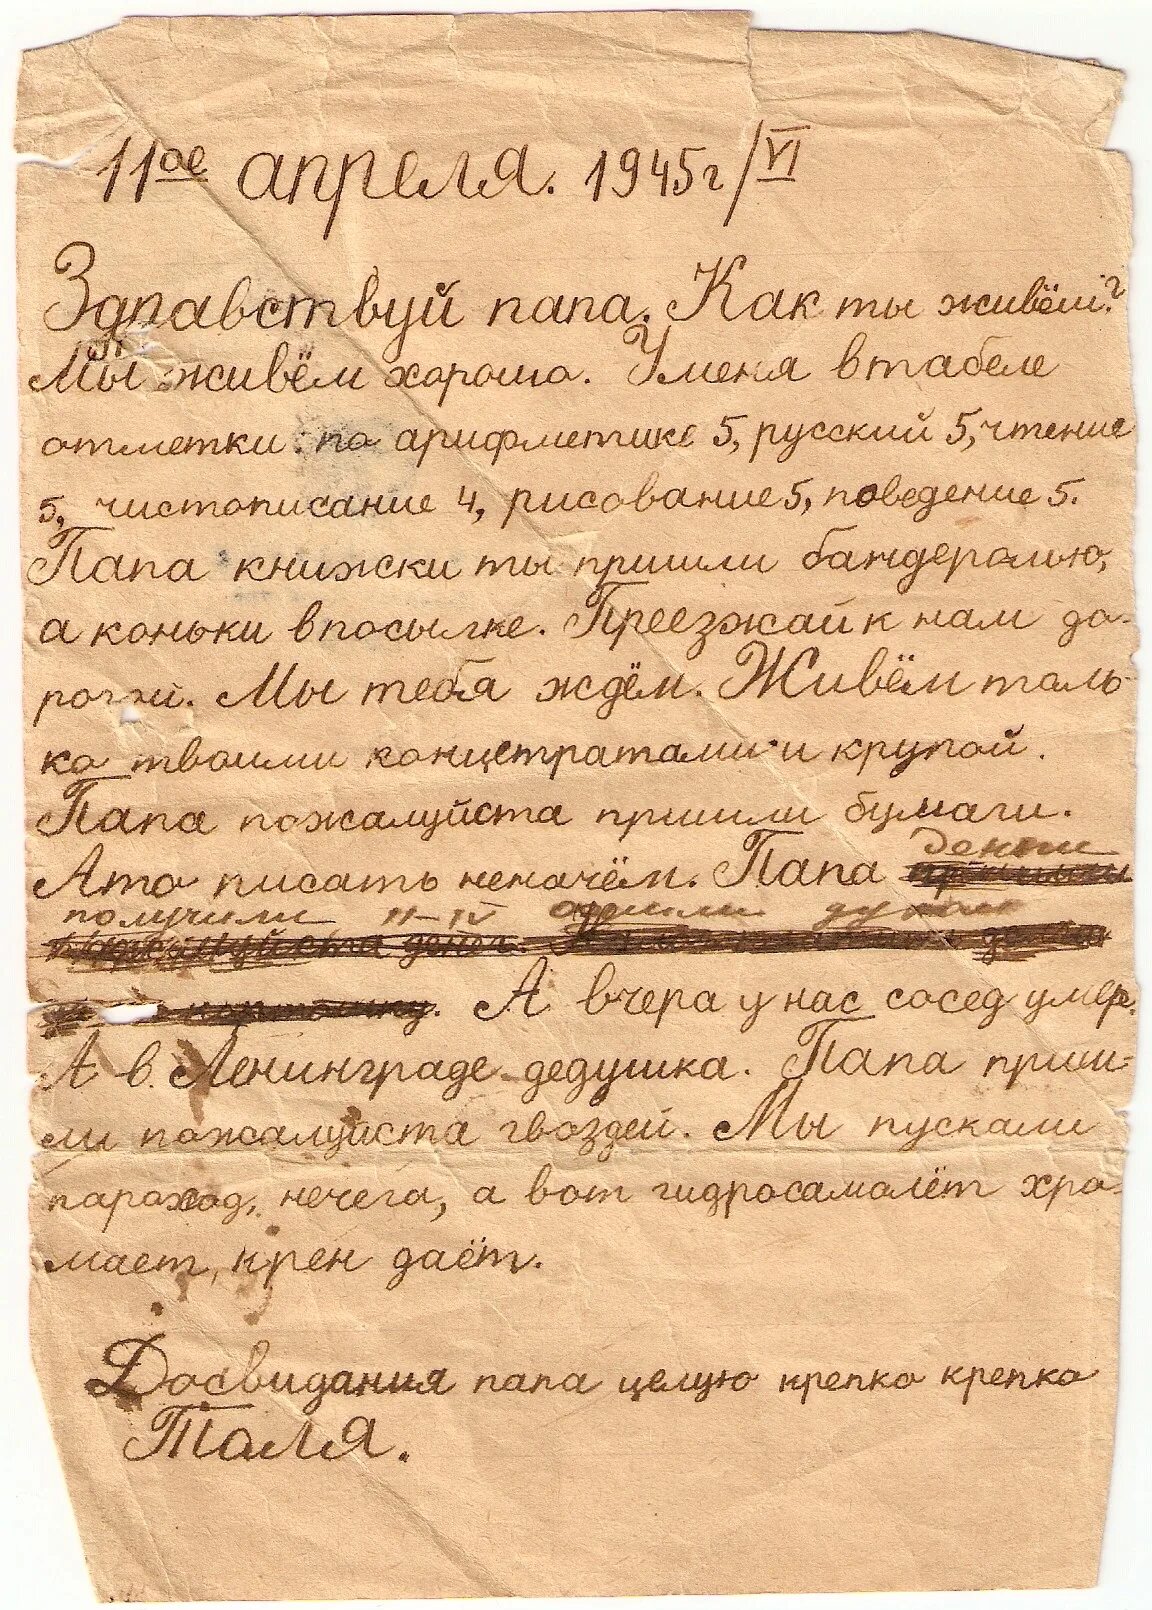 11ое апреля. 1945г/VI
Здравствуй папа. Как ты живёш?
Мы живём хорошо. Уменя втабеле
отметки: по арифметике 5, русский 5, чтение
5, чистописание 4, рисование 5, поведение 5.
Папа книжки ты пришли бандеролью,
а коньки впосылке. Преезжай к нам до-
рогой. Мы тебя ждём. Живём толь-
ко твоими концетратами и крупой.
Папа пожалуйста пришли бумаги.
Ато писать неначем. Папа деньги
получили 11-IV
пожалуйста денег.
карточку. А вчера у нас сосед умер.
А в Ленинграде дедушка. Папа приш-
ли пожалуйста гвоздей. Мы пускали
пароход, нечего, а вот гидросамолёт хро-
мает, крен даёт.
Досвидания папа целую крепко крепко
Толя.